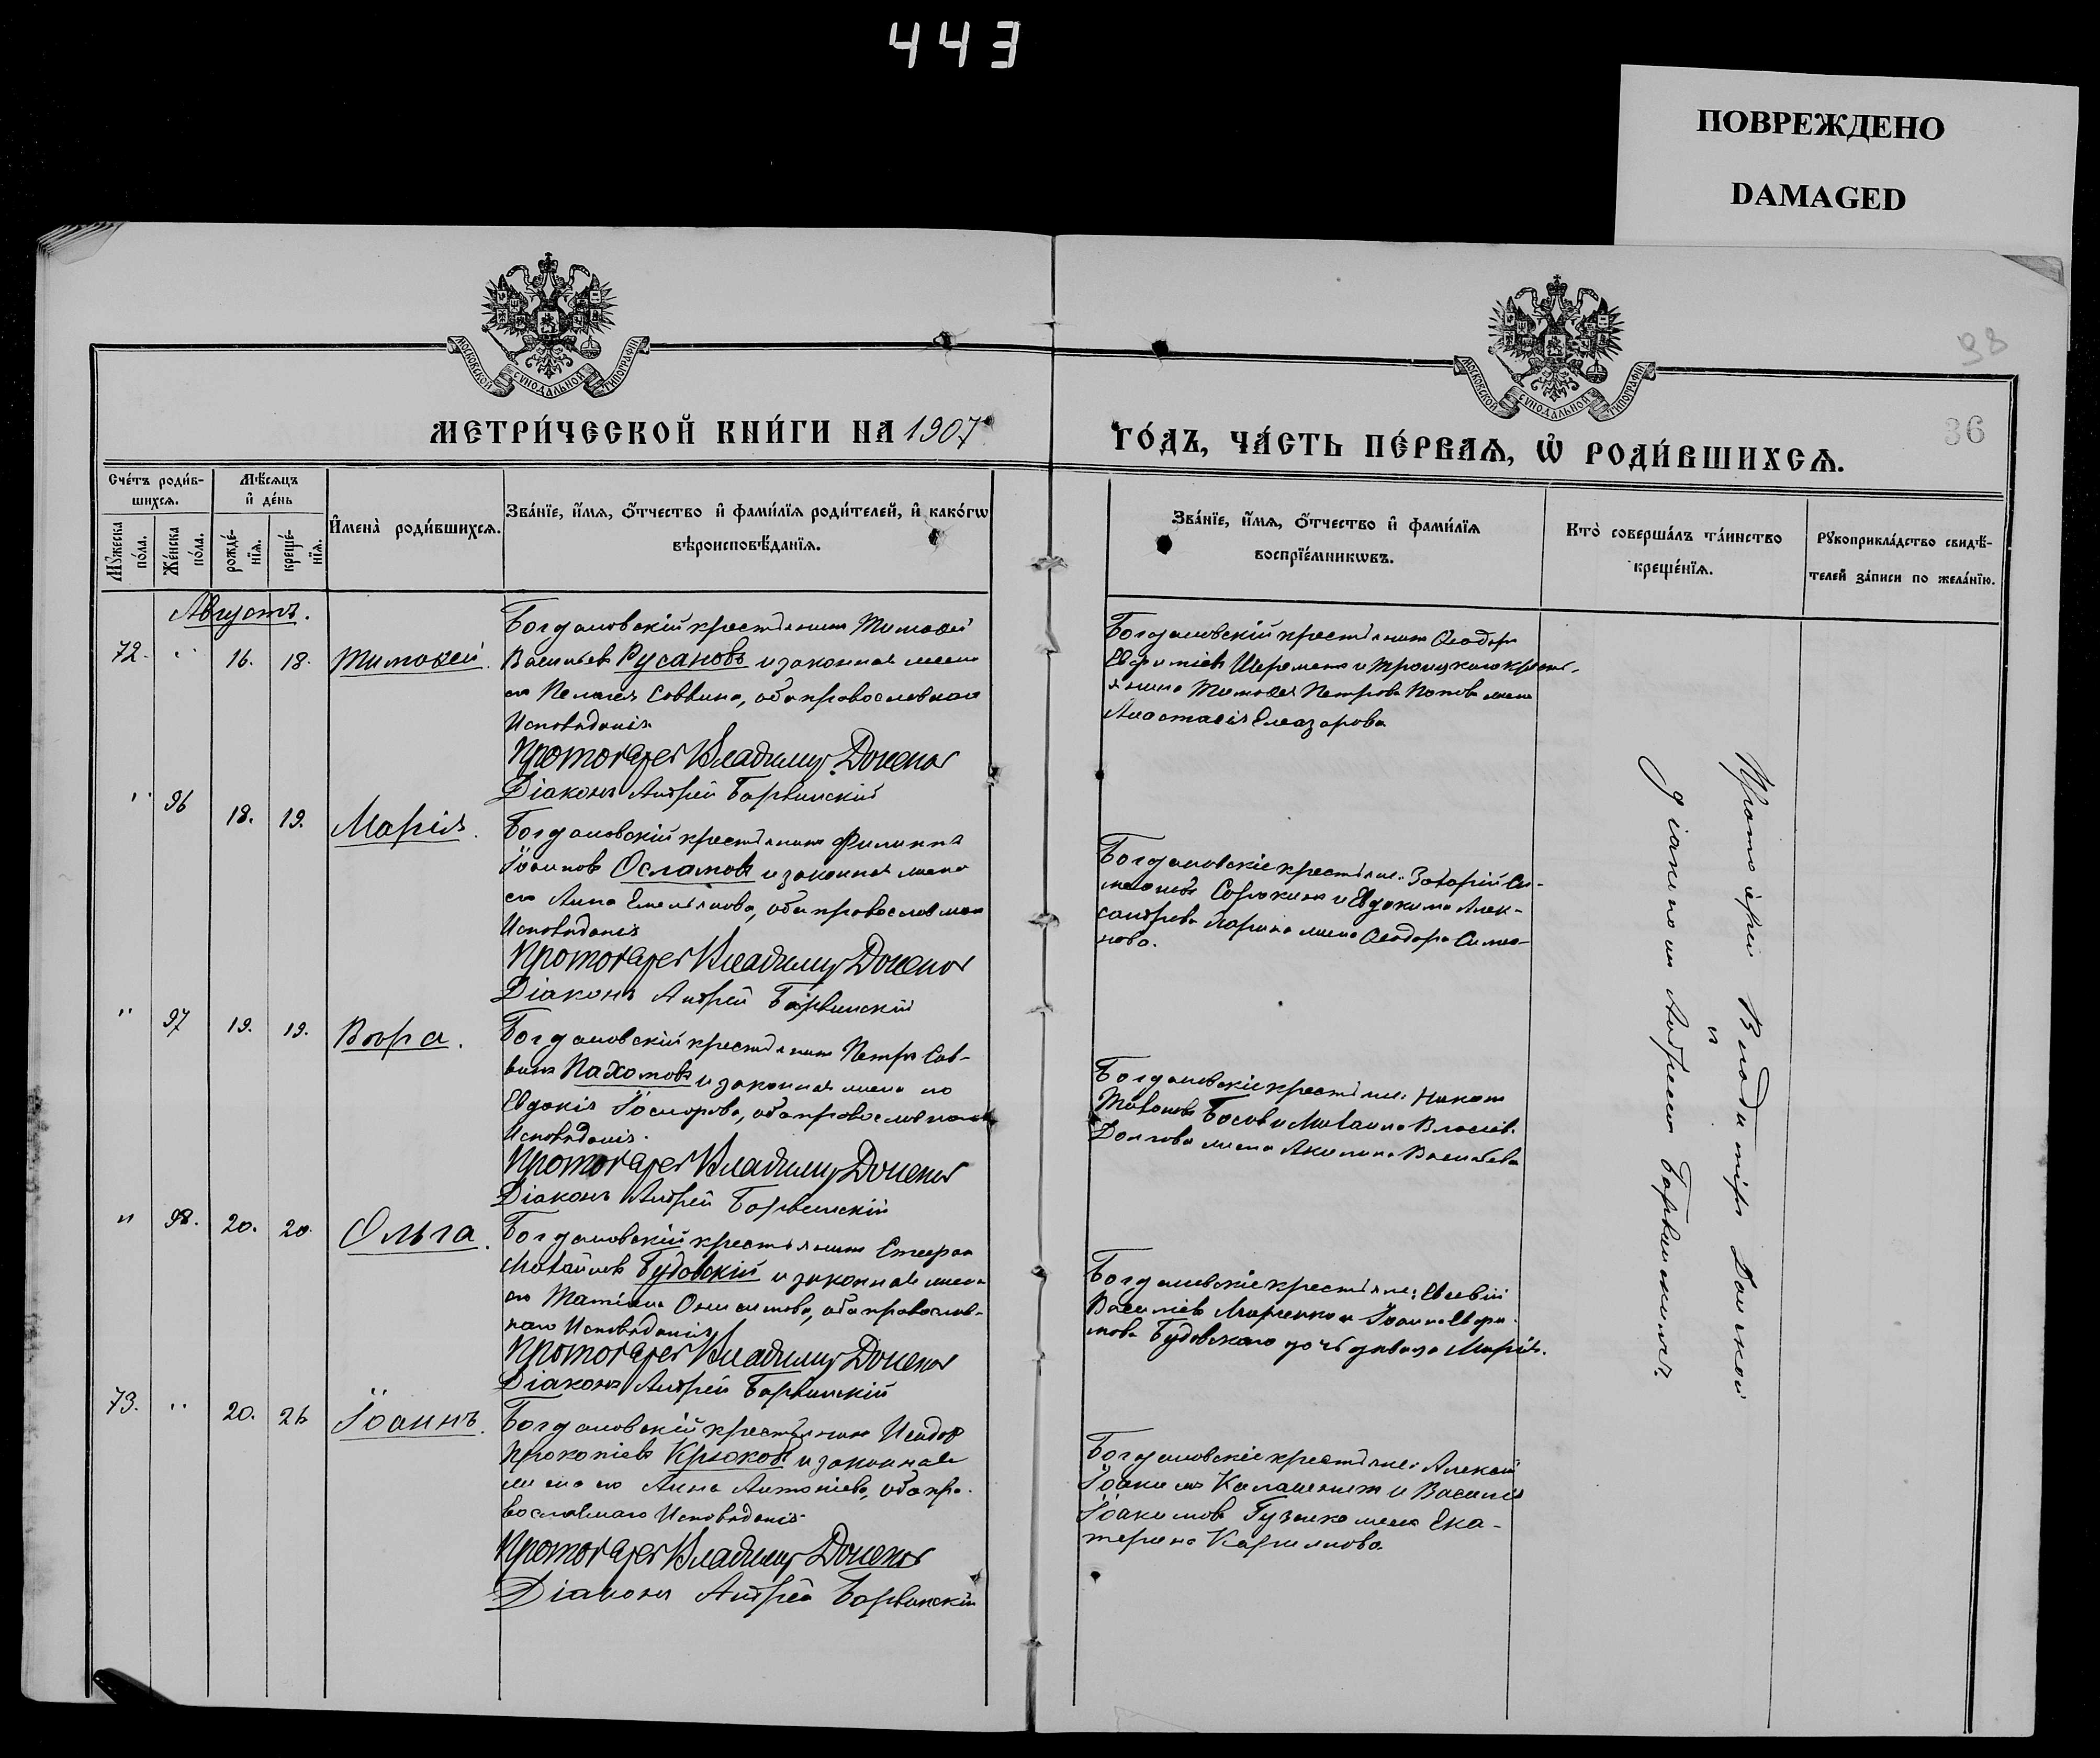 443
ПОВРЕЖДЕНО
DAMAGED
МОСКОВСКОЙ СУНОДАЛЬНОЙ ТИПОГРАФІИ
МОСКОВСКОЙ СУНОДАЛЬНОЙ ТИПОГРАФІИ
38
36
МЕТРИ́ЧЕСКОЙ КНИ́ГИ НА 1907
ГО́ДЪ, ЧА́СТЬ ПЕ́РВАѦ, Ѡ҆ РОДИ́ВШИХСѦ.
Сче́тъ роди́в-
шихсѧ.
Мꙋ́жеска по́ла.
Же́нска по́ла.
Мѣ́сѧцъ
и҆ де́нь
рожде́-
нїѧ.
креще́-
нїѧ.
И҆мена̀ роди́вшихсѧ.
Зва́нїе, и҆́мѧ, ѻ҆́тчество и҆ фами́лїѧ роди́телей, и҆ како́гѡ
вѣроисповѣ́данїѧ.
Зва́нїе, и҆́мѧ, ѻ҆́тчество и҆ фами́лїѧ
воспрїе́мникѡвъ.
Кто̀ соверша́лъ та́инство
креще́нїѧ.
Рꙋкоприкла́дство свидѣ́-
телей за́писи по жела́нїю.
Августъ.
72. " 16. 18. Тимоѳей.
Богдановскій крестьянинъ Тимоѳей
Васильевъ Русановъ и законная жена
его Пелагея Саввина, оба православнаго
Исповѣданія
Протоіерей Владимиръ Донской
Діаконъ Андрей Барвинскій
Богдановскій крестьянинъ Ѳеодоръ
Евфиміевъ Шеремета и Троицкаго кресть-
янина Тимоѳея Петрова Попова жена
Анастасія Елеазарова
" 96 18. 19. Марія.
Богдановскій крестьянинъ Филиппъ
Іоанновъ Осламовъ и законная жена
его Анна Емельянова, оба православнаго
Исповѣданія
Протоіерей Владимиръ Донской
Діаконъ Андрей Барвинскій
Богдановскіе крестьяне: Захарій Си-
меоновъ Сорокинъ и Евдокима Алек-
сандрова Ларина жена Ѳеодора Симео-
нова.
" 97 19. 19. Вѣра.
Богдановскій крестьянинъ Петръ Сав-
винъ Пахомовъ и законная жена его
Евдокія Исидорова, оба православнаго
Исповѣданія.
Протоіерей Владимиръ Донской
Діаконъ Андрей Барвинскій
Богдановскіе крестьяне:
Босовъ и Михаила Власіев.
Долгова жена Акилина Васильева
" 98. 20. 20. Ольга.
Богдановскій крестьянинъ Стефанъ
Михайловъ Будовскій и законная жена
его Татіана Онисимова, оба православ-
наго Исповѣданія
Протоіерей Владимиръ Донской
Діаконъ Андрей Барвинскій
Богдановскіе крестьяне: Евсевій
Василіевъ Марченко и Іоанна Ефи-
мова Будовскаго дочь дѣвица Марія.
73. " 20. 26 Іоаннъ.
Богдановскій крестьянинъ Исидоръ
Прокопіевъ Крюковъ и законная
жена его Анна Антоніева, оба пра-
вославнаго Исповѣданія
Протоіерей Владимиръ Донской
Діаконъ Андрей Барвинскій
Богдановскіе крестьяне: Алексій
Іоакимовъ и Василія
Іоакимова Гузенко жена Ека-
терина
Протоіерей Владиміръ Донской
и
діакономъ Андреемъ Барвинскимъ.